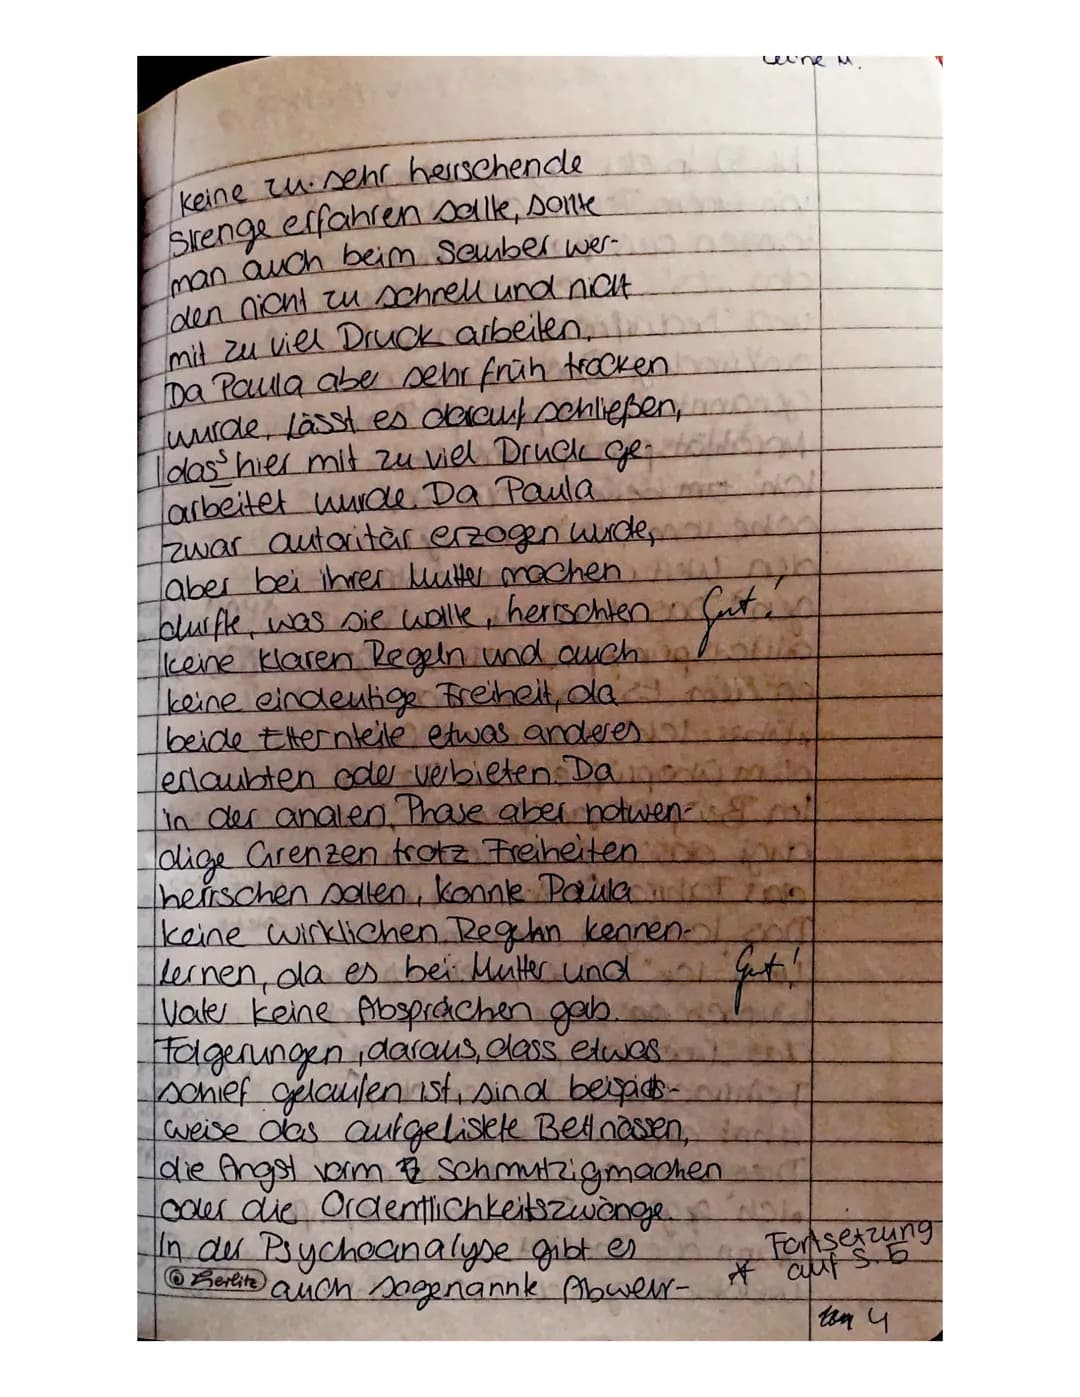 M.
keine zu sehr herrschende
Strenge erfahren sollte, sollte
man auch beim Sauber wer-
den nicht zu schnell und nicht
mit zu viel Druck arbeiten.
Da Paula aber sehr früh trocken
wurde, lässt es darauf schließen,
dass hier mit zu viel Druck ge-
arbeitet wurde. Da Paula
zwar autoritär erzogen wurde,
aber bei ihrer Mutter machen
durfte, was sie wollte, herrschten Gut!
keine klaren Regeln und auch
keine eindeutige Freiheit, da
beide Elternteile etwas anderes
erlaubten oder verbieten. Da
in der analen Phase aber notwen-
dige Grenzen trotz Freiheiten
herrschen sollen, konnte Paula
keine wirklichen Regeln kennen-
lernen, da es bei Mutter und Gut!
Vater keine Absprachen gab.
Folgerungen, daraus, dass etwas
schief gelaufen ist, sind beispiels-
weise das aufgelistete Bettnässen,
die Angst vorm Schmutzigmachen
oder die Ordentlichkeitszwänge.
In der Psychoanalyse gibt es
auch sogenannte Abwehr-
* Fortsetzung
auf S. 5
© Berlitz
4